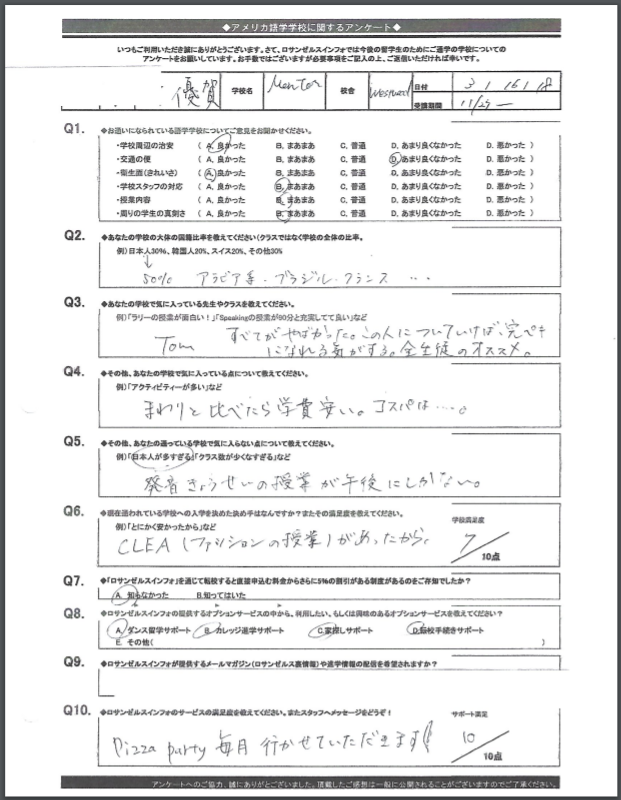 ◆アメリカ語学学校に関するアンケート◆
いつもご利用いただき誠にありがとうございます。さて、ロサンゼルスインフォでは今後の留学生のためにご通学の学校についての
アンケートをお願いしています。お手数ではございますが必要事項をご記入の上、ご返信いただければ幸いです。
優賀 学校名 Mentor 校舎 Westwood 日付 3 1 16 18
受講期間 11/29 ー
Q1. ◆お通いになられている語学学校についてご意見をお聞かせください。
・学校周辺の治安 ( A. 良かった B. まあまあ C. 普通 D. あまり良くなかった D. 悪かった )
・交通の便 ( A. 良かった B. まあまあ C. 普通 D. あまり良くなかった D. 悪かった )
・衛生面(きれいさ) ( A. 良かった B. まあまあ C. 普通 D. あまり良くなかった D. 悪かった )
・学校スタッフの対応 ( A. 良かった B. まあまあ C. 普通 D. あまり良くなかった D. 悪かった )
・授業内容 ( A. 良かった B. まあまあ C. 普通 D. あまり良くなかった D. 悪かった )
・周りの学生の真剣さ ( A. 良かった B. まあまあ C. 普通 D. あまり良くなかった D. 悪かった )
Q2. ◆あなたの学校の大体の国籍比率を教えてください(クラスではなく学校の全体の比率。
例)日本人30%、韓国人20%、スイス20%、その他30%
↓
50% アラビア系・ブラジル・フランス ・・・
Q3. ◆あなたの学校で気に入っている先生やクラスを教えてください。
例)「ラリーの授業が面白い!」「Speakingの授業が90分と充実してて良い」など
Tom すべてがやばかった。この人についていけば、完ペキ
になれる気がする。全生徒のオススメ。
Q4. ◆その他、あなたの学校で気に入っている点について教えてください。
例)「アクティビティーが多い」など
まわりと比べたら学費安い。コスパは・・・。
Q5. ◆その他、あなたの通っている学校で気に入らない点について教えてください。
例)「日本人が多すぎる」「クラス数が少なくすぎる」など
発音きょうせいの授業が午後にしかない。
Q6. ◆現在通われている学校への入学を決めた決め手はなんですか?またその満足度を教えてください。
例)「とにかく安かったから」など 学校満足度
CLEA (ファッションの授業)があったから、 7
10点
Q7. ◆「ロサンゼルスインフォ」を通じて転校すると直接申込む料金からさらに5%の割引がある制度があるのをご存知でしたか?
A. 知らなかった B.知ってはいた
Q8. ◆ロサンゼルスインフォの提供するオプションサービスの中から、利用したい、もしくは興味のあるオプションサービスを教えてください?
A. ダンス留学サポート B. カレッジ進学サポート C.家探しサポート D.転校手続きサポート
E. その他( )
Q9. ◆ロサンゼルスインフォが提供するメールマガジン(ロサンゼルス裏情報)や進学情報の配信を希望されますか?
Q10. ◆ロサンゼルスインフォのサービスの満足度を教えてください。またスタッフへメッセージをどうぞ! サポート満足
Pizza party 毎月 行かせていただきます!! 10
10点
アンケートへのご協力、誠にありがとございました。頂戴したご感想は一般に公開されることがございますのでご了承ください。